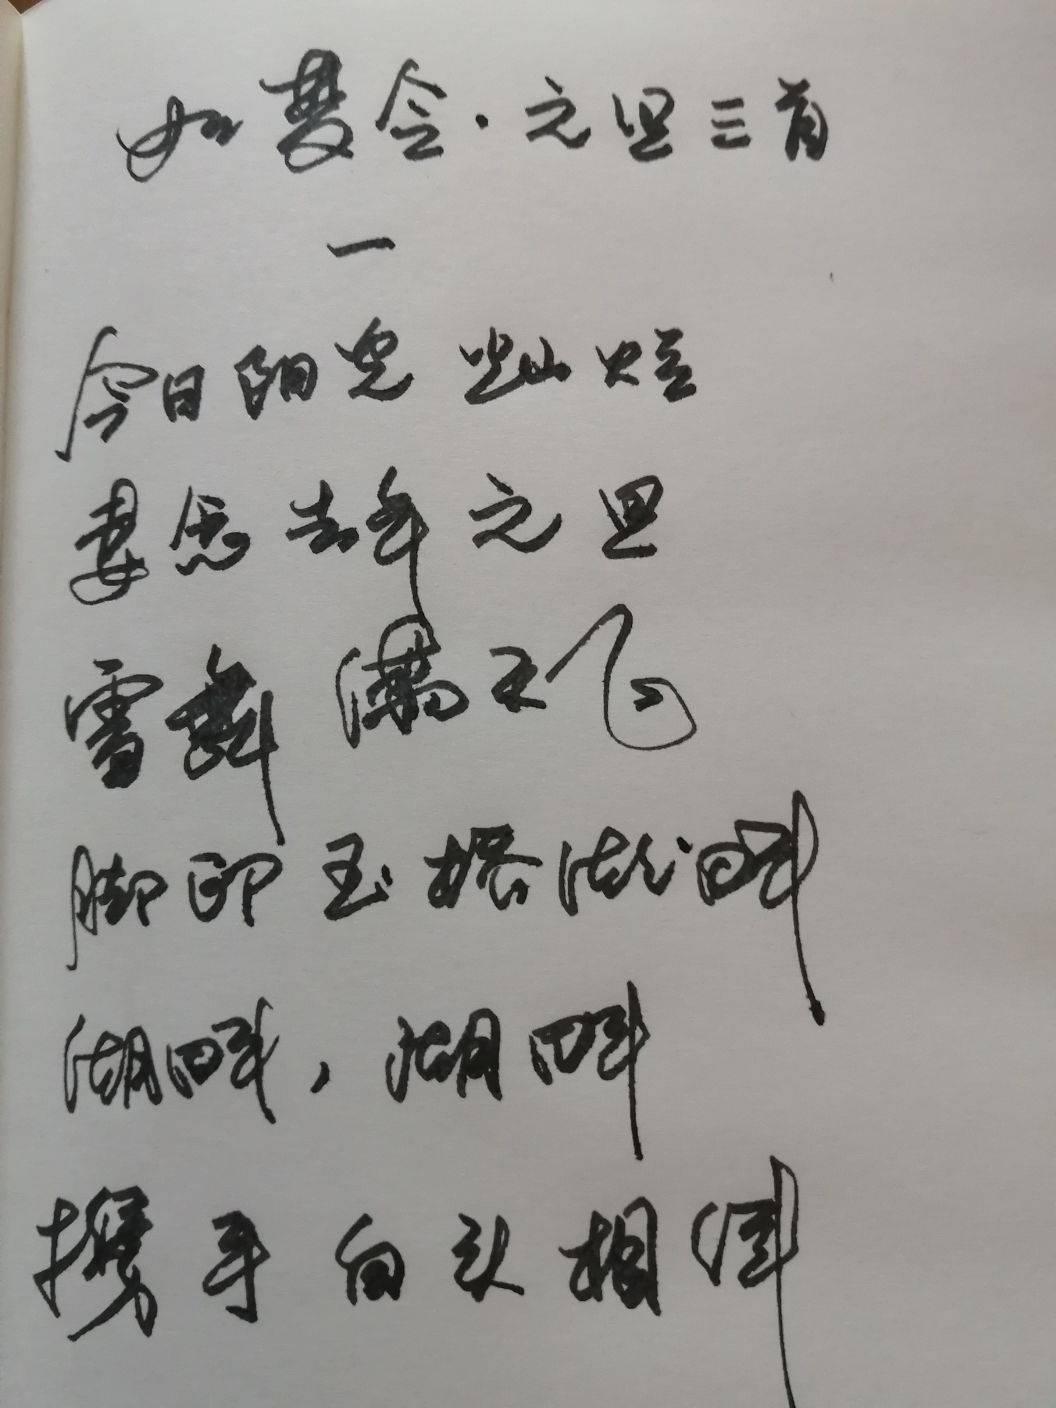 如梦令·元旦三首
一
今日阳光灿烂
妻忆去年元旦
雪舞满天飞
脚印玉塔湖畔
湖畔，湖畔
携手白头相伴